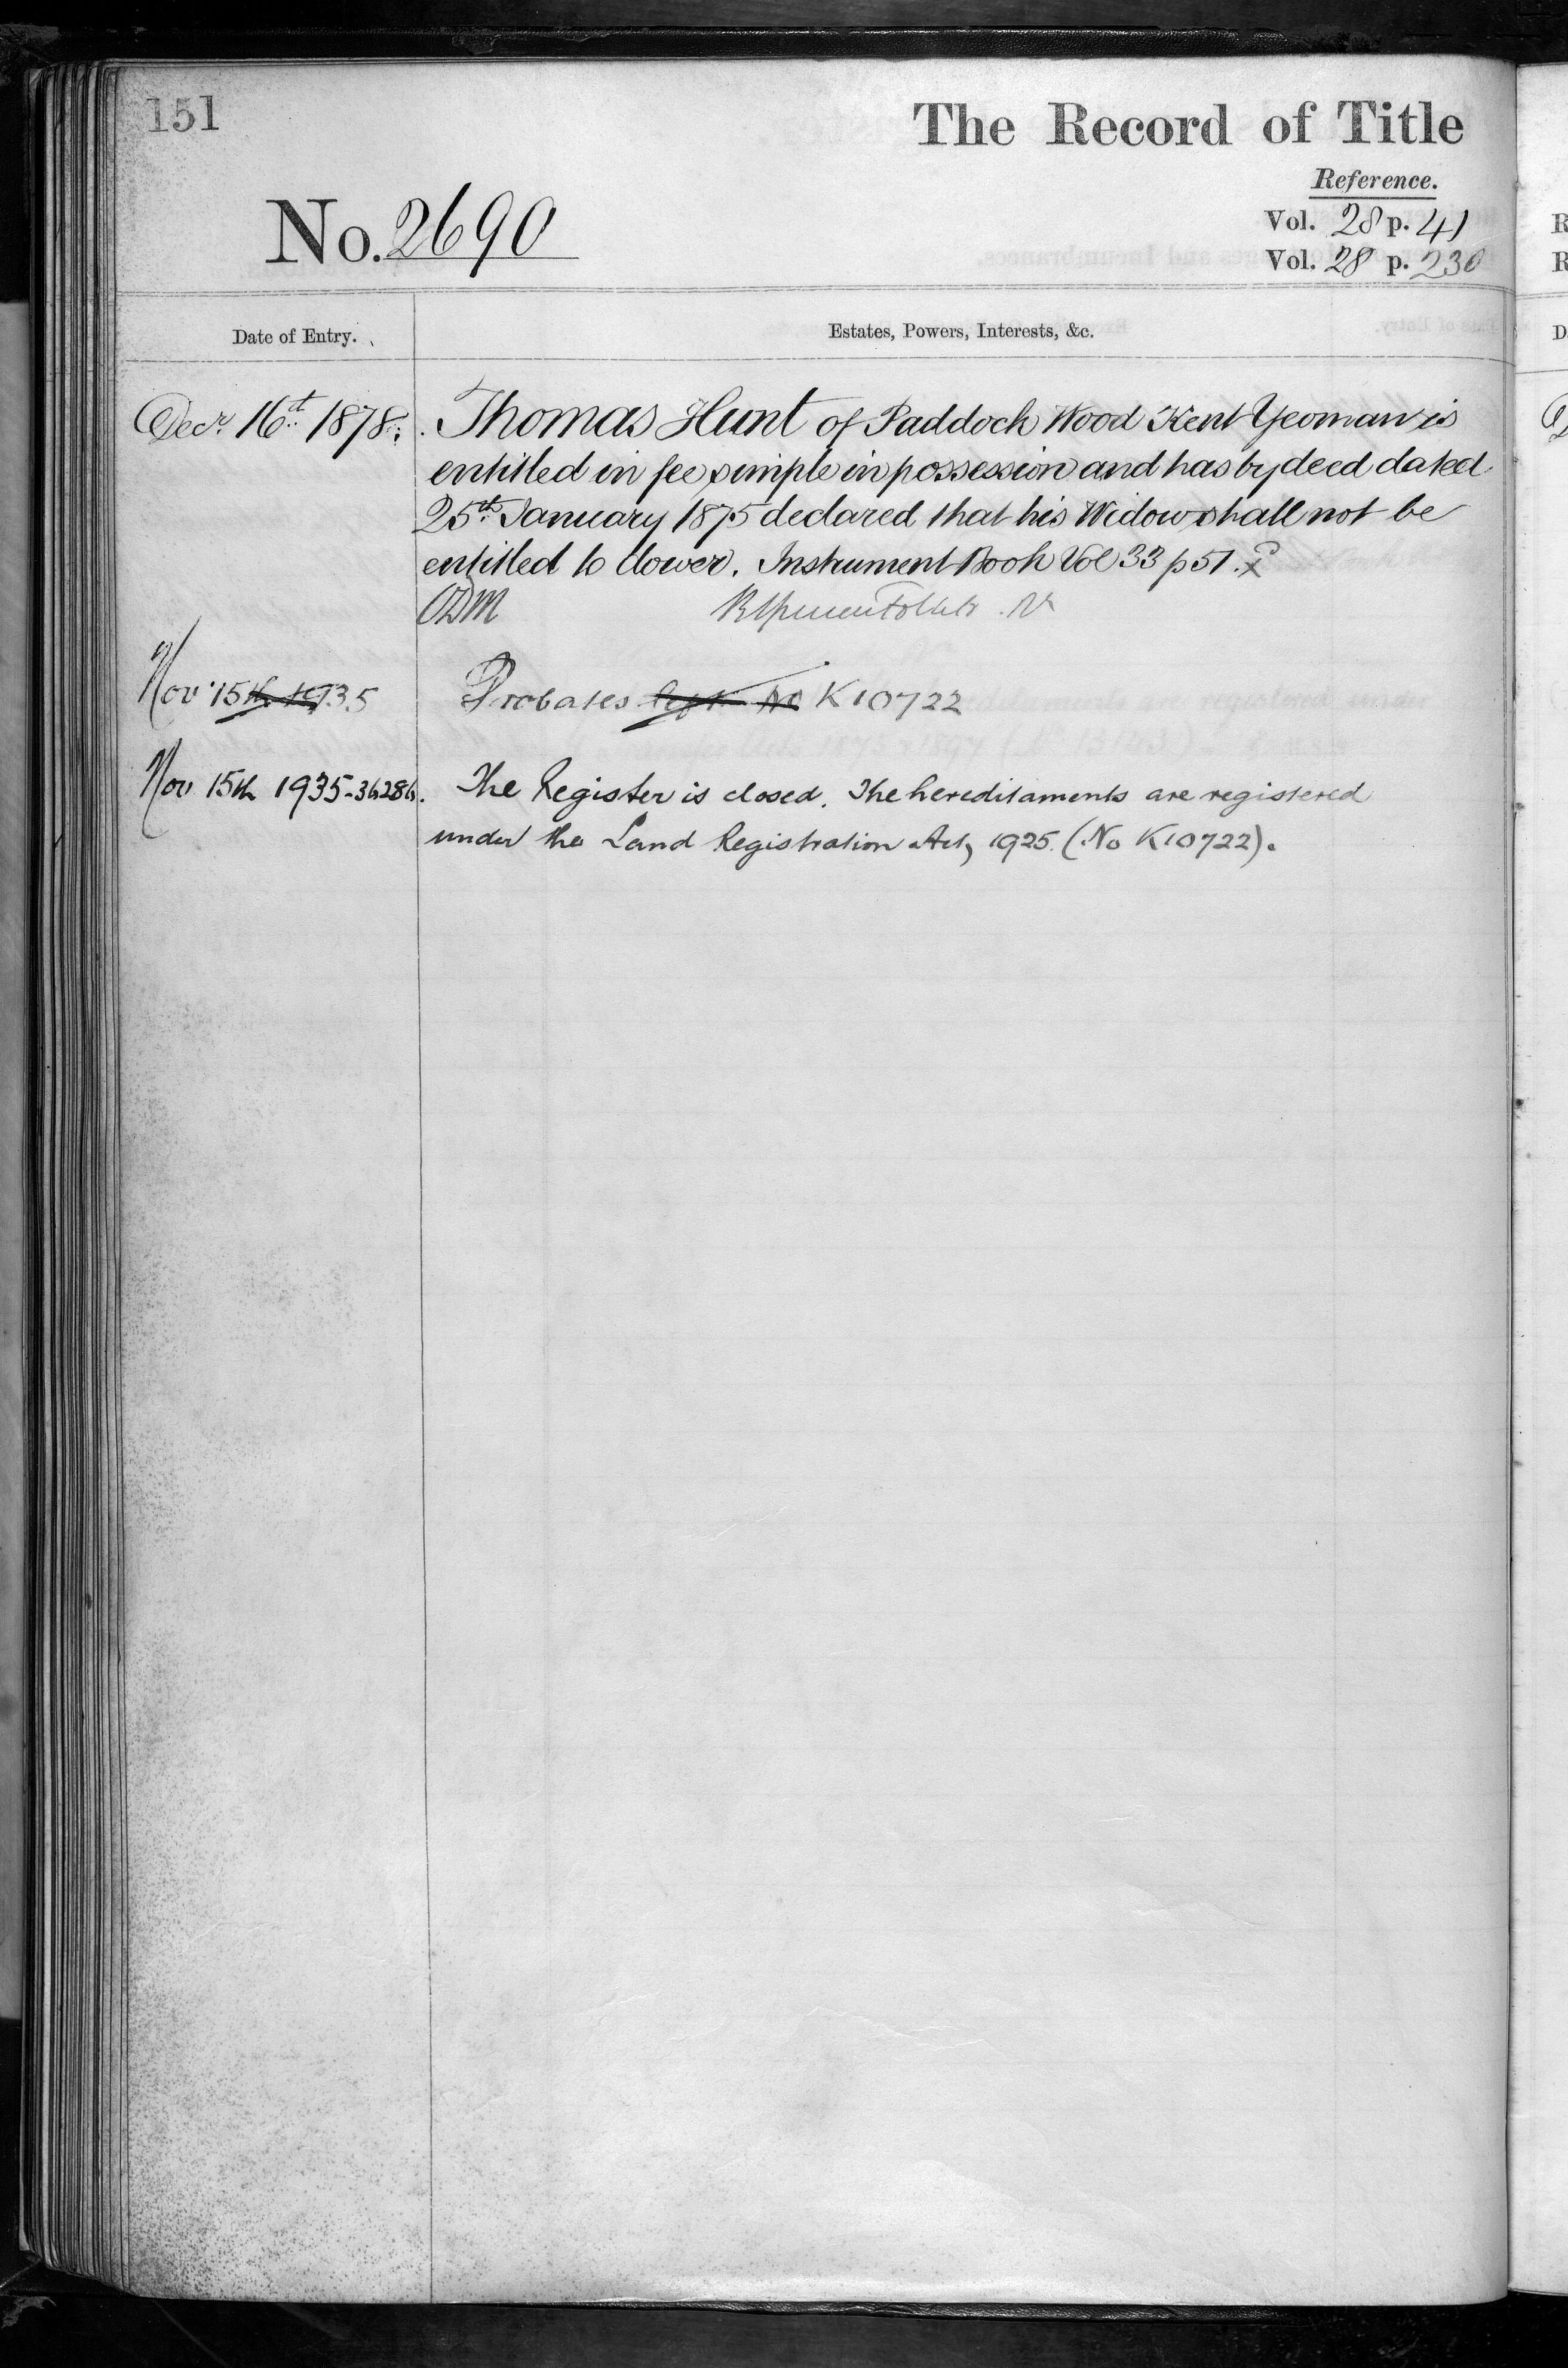 151
The Record of Title
Reference.
No. 2690
Vol. 28 p. 41
Vol. 28 p. 230
Date of Entry.
Estates, Powers, Interests, &c.
Decr. 16th 1878.
Thomas Hunt of Paddock Wood Kent Yeoman is
entitled in fee simple in possession and has by deed dated
25th January 1875 declared that his Widow shall not be
entitled to dower. Instrument Book Vol 33 p 51.
ODM
Nov 15th 1935
Probates K10722
Nov 15th 1935
The Register is closed. The hereditaments are registered
under the Land Registration Act, 1925. (No K10722).